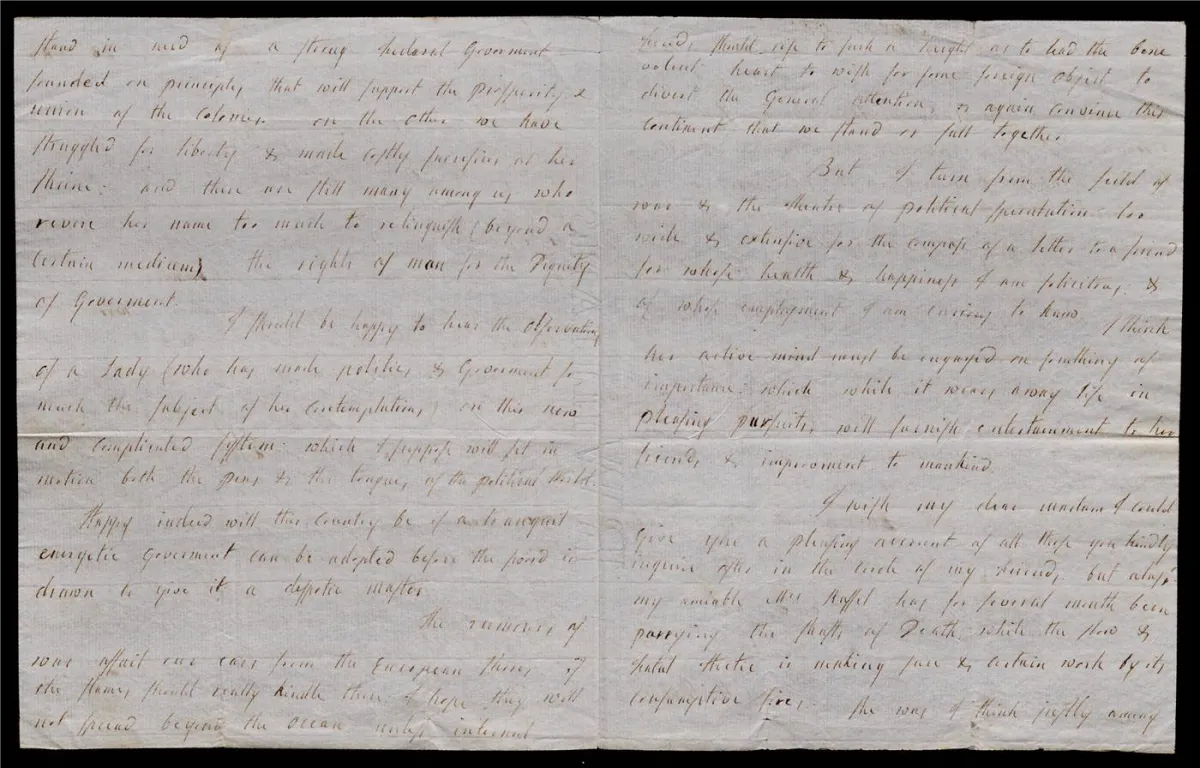 stand in need of a strong Federal Goverment
founded on principles, that will support the prosperity &
union of the colonies. on the other we have
struggled for liberty & made costly sacrifices at her
shrine: and there are still many among us who
revere her name too much to relinquish (beyond a
certain medium) the rights of man for the Dignity
of Goverment.
I should be happy to hear the observations
of a Lady (who has made politics & Goverment so
much the subject of her contemplations) on this new
and complicated system: which I suppose will set in
motion both the pens & the tongues of the political World.
Happy indeed will this Country be if a tranquil
energetic goverment can be adopted before the sword is
drawn to give it a despotic master
The rumours of
war assail our ears from the European shores, if
the flames should really kindle there I hope they will
not spread beyond the ocean unless internal
feuds, should rise to such a height as to lead the bene
volent heart to wish for some foreign object to
divert the General attention, or again convince this
continent that we stand or fall together.
But I turn from the field of
war & the theatre of political too
wide & extensive for the compass of a letter to a friend
for whose health & happiness I am solicitous, &
of whose employment I am curious to know. I think
her active mind must be engaged on somthing of
importance: which while it wears away life in
pleasing pursuits, will furnish entertainment to her
friends, & improvment to mankind.
I wish my dear madam I could
give you a pleasing account of all those you kindly
inquire after in the circle of my Friends, but alass
my amiable Mrs Russel has for several month been
parrying the shafts of Death, while the slow &
fatal Hectic is making sure & certain work by its
consumptive fires. She was I think justly among